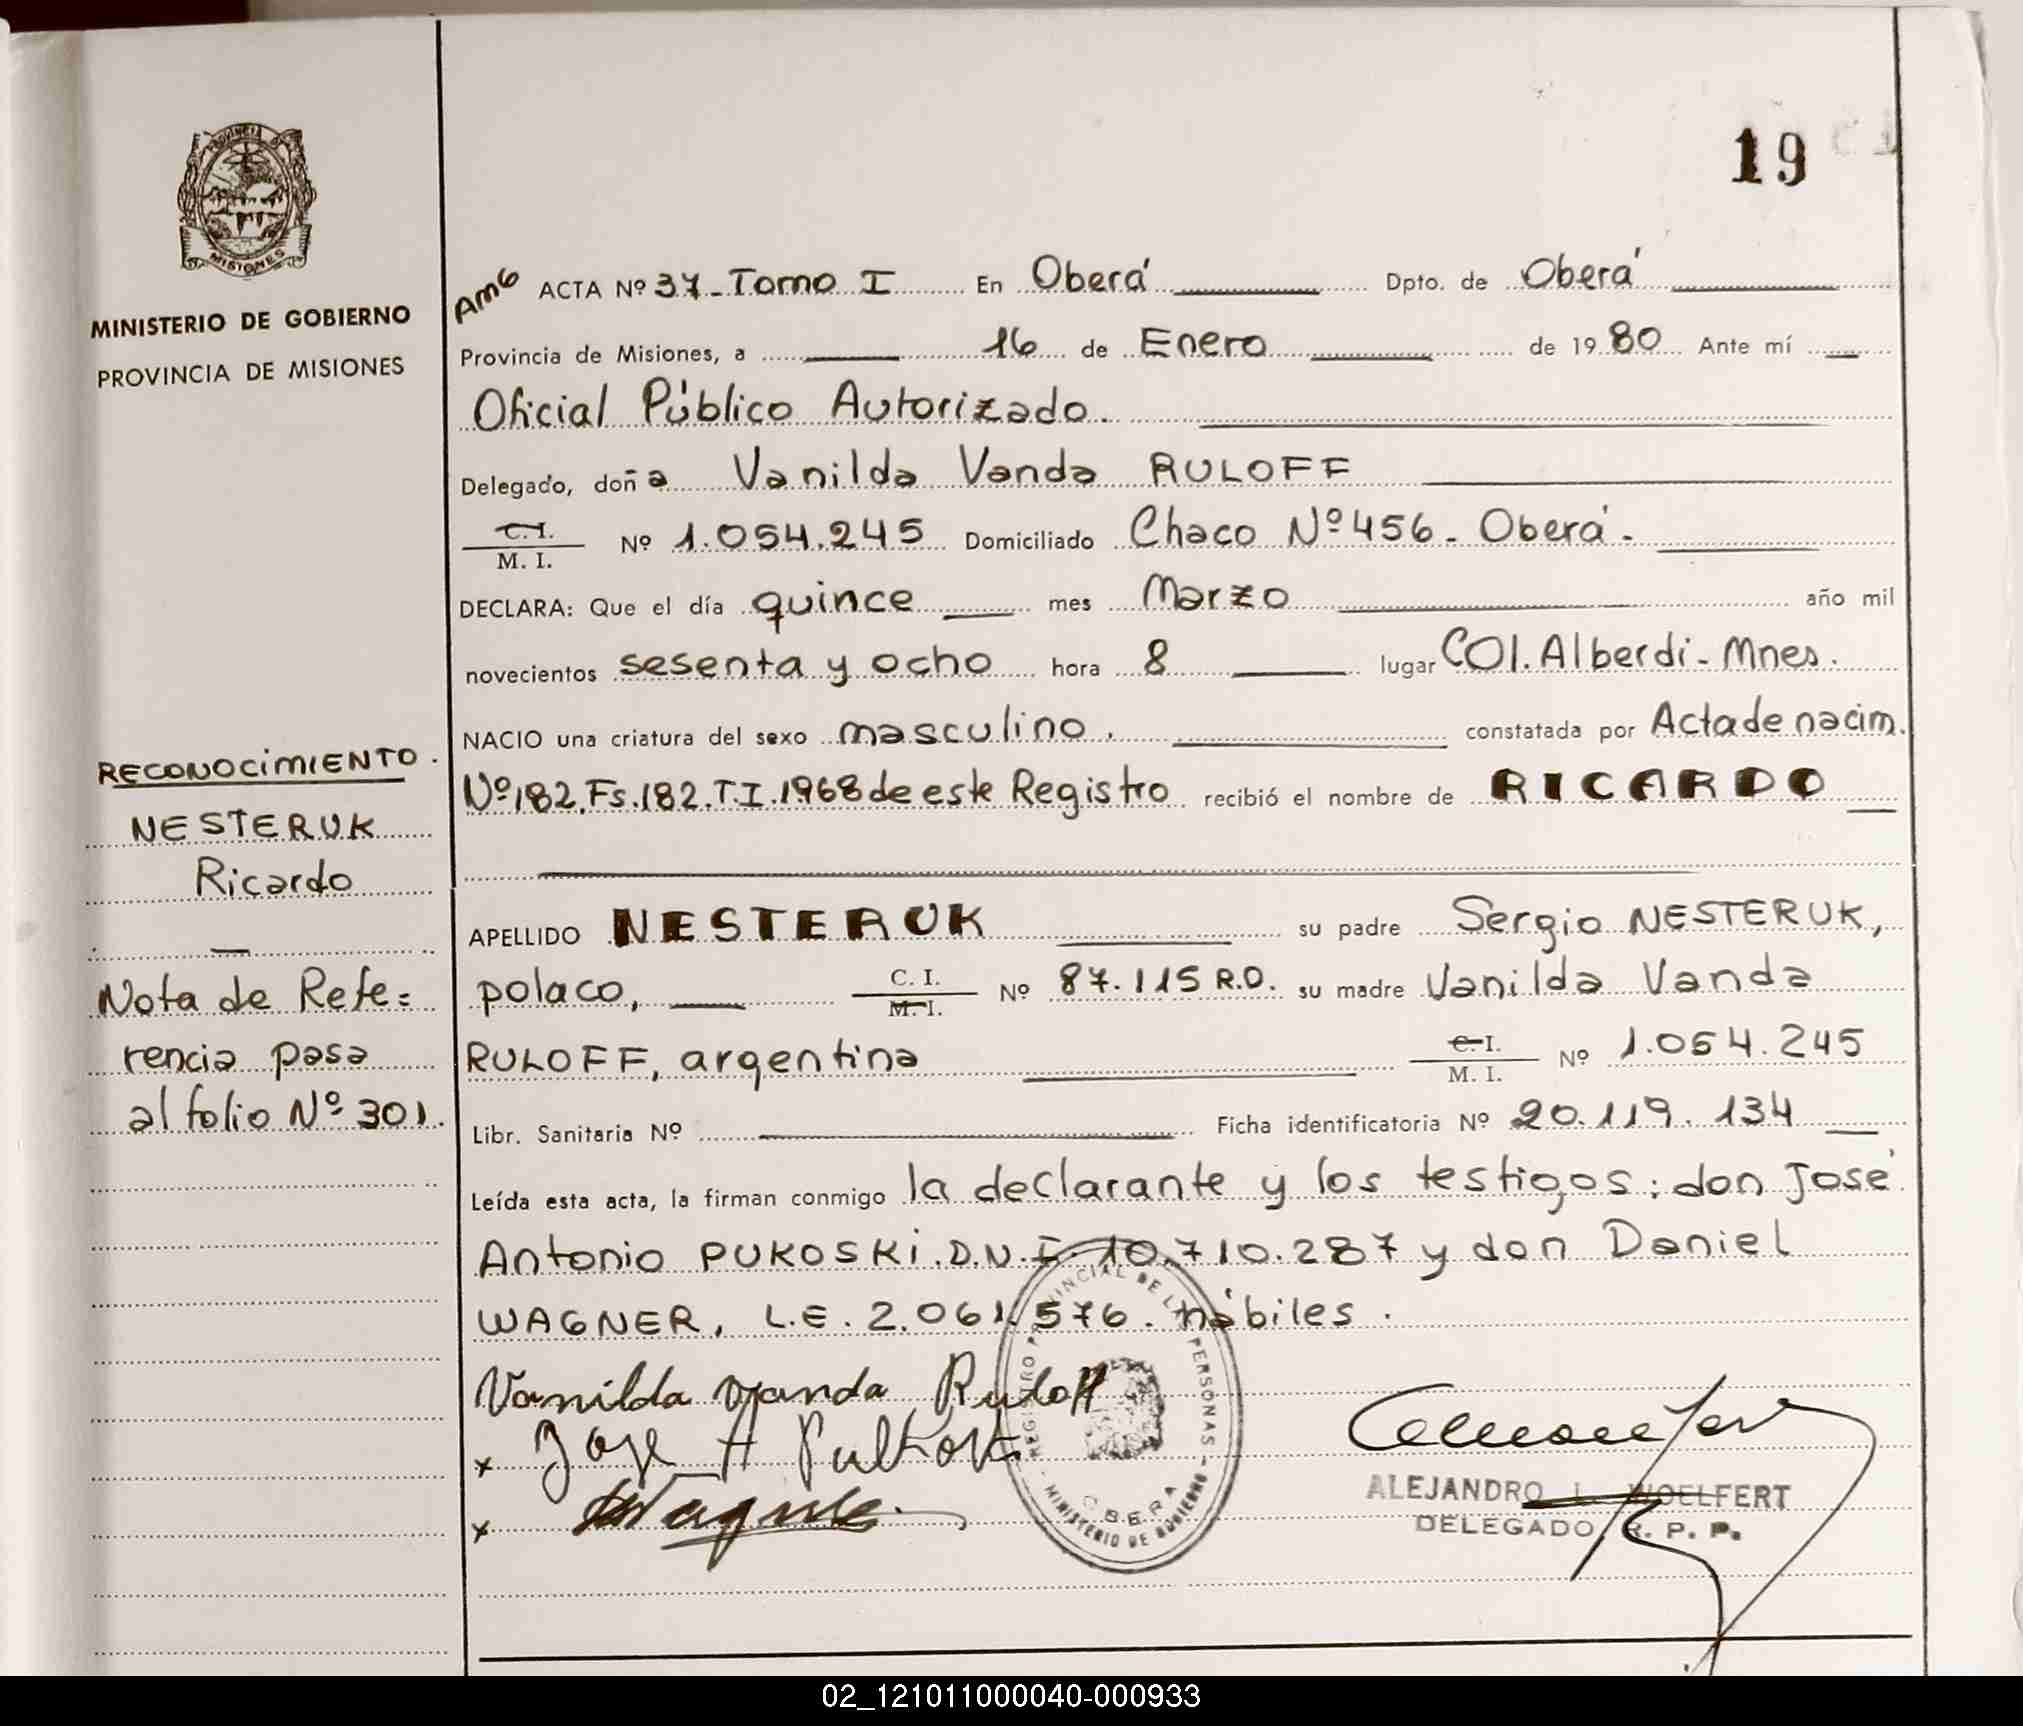 19
PROVINCIA D
MISIONES
MINISTERIO DE GOBIERNO
PROVINCIA DE MISIONES
AMG ACTA Nº 37 - Tomo I En Oberá Dpto. de Oberá
Provincia de Misiones, a 16 de Enero de 1980 Ante mí
Oficial Público Autorizado.
Delegado, doña Vanilda Vanda RULOFF
C.I. M. I. Nº 1.054.245 Domiciliado Chaco Nº 456 - Oberá.
DECLARA: Que el día quince mes Marzo año mil
novecientos sesenta y ocho hora 8 lugar COl. Alberdi - Mnes.
NACIO una criatura del sexo masculino. constatada por Acta de nacim.
Nº 182. Fs. 182. T. I. 1968 de este Registro recibió el nombre de RICARDO
APELLIDO NESTERUK su padre Sergio NESTERUK,
polaco, C. I. M. I. Nº 87.115 R.D. su madre Vanilda Vanda
RULOFF, argentina C.I. M. I. Nº 1.054.245
Libr. Sanitaria Nº Ficha identificatoria Nº 20.119.134
Leída esta acta, la firman conmigo la declarante y los testigos: don José
Antonio PUKOSKi. D.N.I. 10.710.287 y don Daniel
WAGNER, L.E. 2.061.576. hábiles.
RECONOCIMIENTO.
NESTERUK
Ricardo
Nota de Refe=
rencia pasa
al folio Nº 301.
Vanilda Vanda Ruloff
x Jose A
x Wagner
REGISTRO PROVINCIAL DE LAS PERSONAS - MINISTERIO DE GOBIERNO -
OBERA
ALEJANDRO L. WOELFERT
DELEGADO R. P. P.
02_121011000040-000933